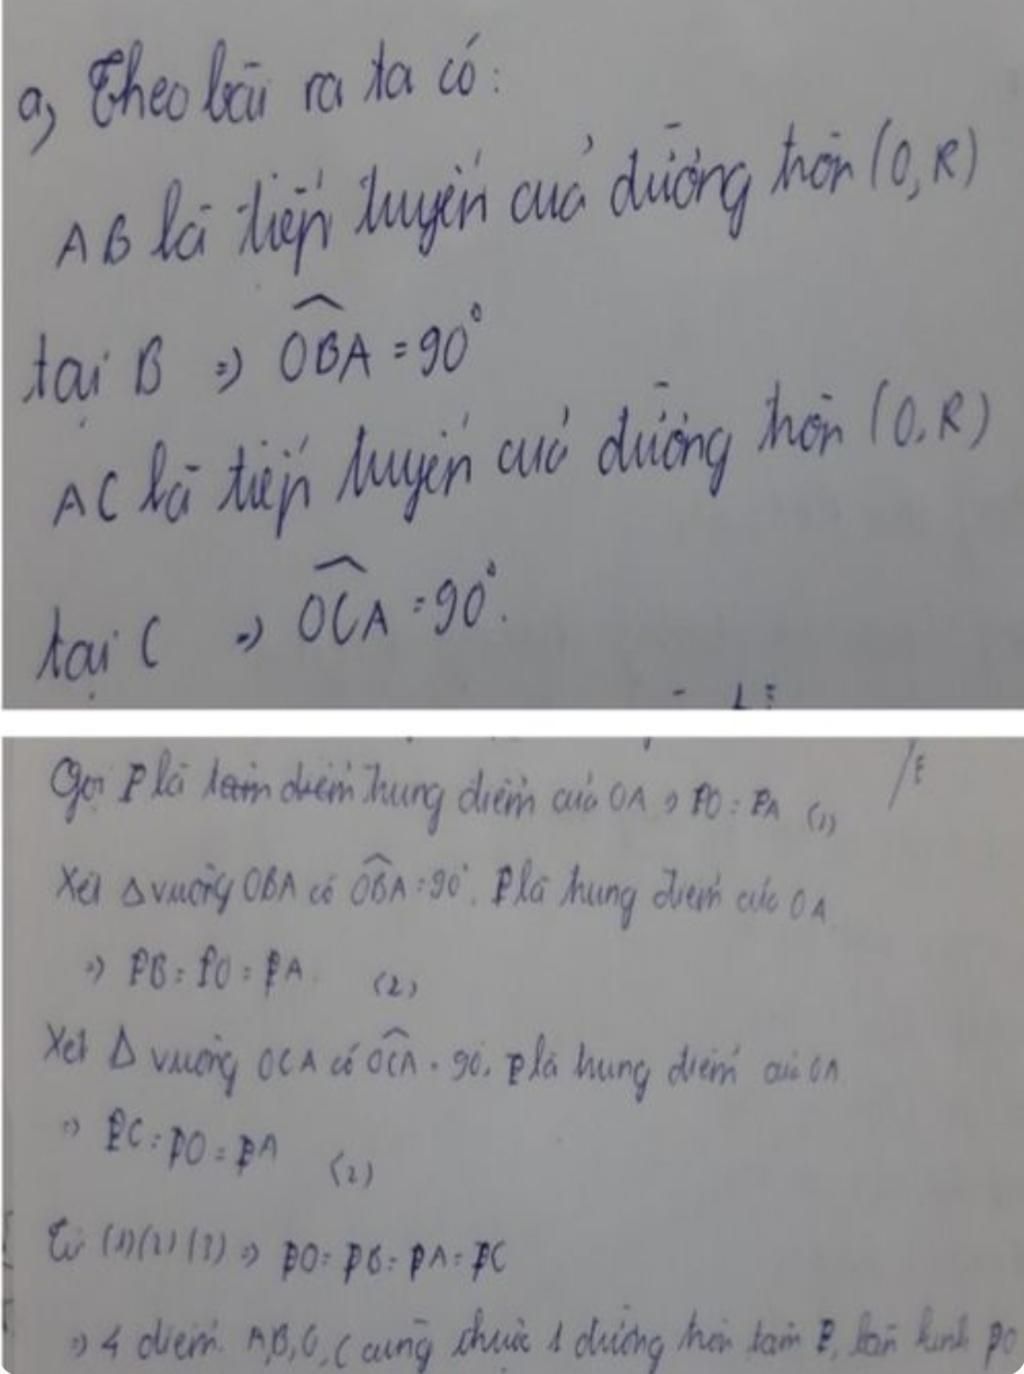 a, Theo bài ra ta có:
AB là tiếp tuyến của đường tròn (O, R)
tại B => \widehat{OBA} = 90°
AC là tiếp tuyến của đường tròn (O, R)
tại C => \widehat{OCA} = 90°.
Gọi P là điểm trung điểm của OA => PO = PA (1)
Xét Δ vuông OBA có \widehat{OBA} = 90°. P là trung điểm của OA
=> PB = PO = PA. (2)
Xét Δ vuông OCA có \widehat{OCA} = 90. P là trung điểm của OA
=> PC = PO = PA (2)
Từ (1) (2) (3) => PO = PB = PA = PC
=> 4 điểm A, B, O, C cùng thuộc 1 đường tròn tâm P, bán kính PO